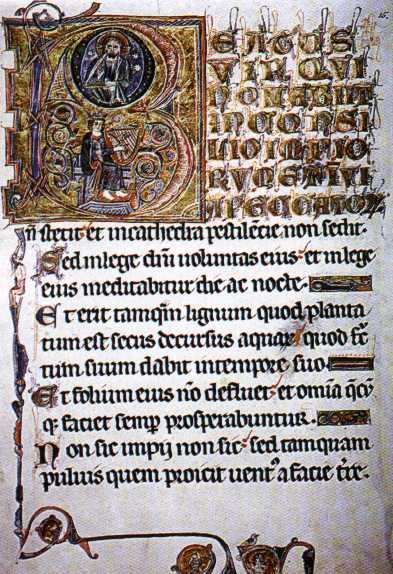 BEATUS
VIR QVI
NON ABIIT
IN CONSI
LIO IMPIO
RVM ET IN VI
A PECCATOR
n̄ stetit et in cathedra pestilēcie non sedit.
Sed in lege dn̄i uoluntas eius et in lege
eius meditabitur die ac nocte.
Et erit tamqͣm lignum quod planta
tum est secus decursus aquaꝝ quod fc̄
tum suum dabit in tempore suo
Et folium eius nō defluet et om̄ia qͣcū
qꝫ faciet semꝑ prosperabuntur.
Non sic impij non sic sed tamquam
puluis quem proicit uentꝰ a facie tr̄e.